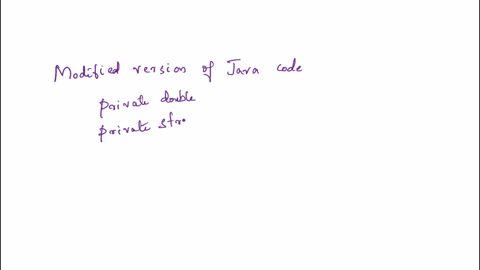 Modified version of Java code
private double
private str